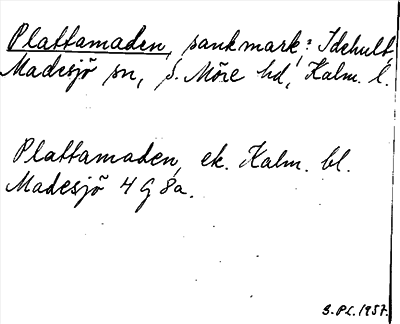 Plattamaden, sankmark: Idehult,
Madesjö sn, S. Möre hd, Kalm. l.
Plattamaden, ek. Kalm. bl.
Madesjö 4 G 8a.
S.PL.1957.